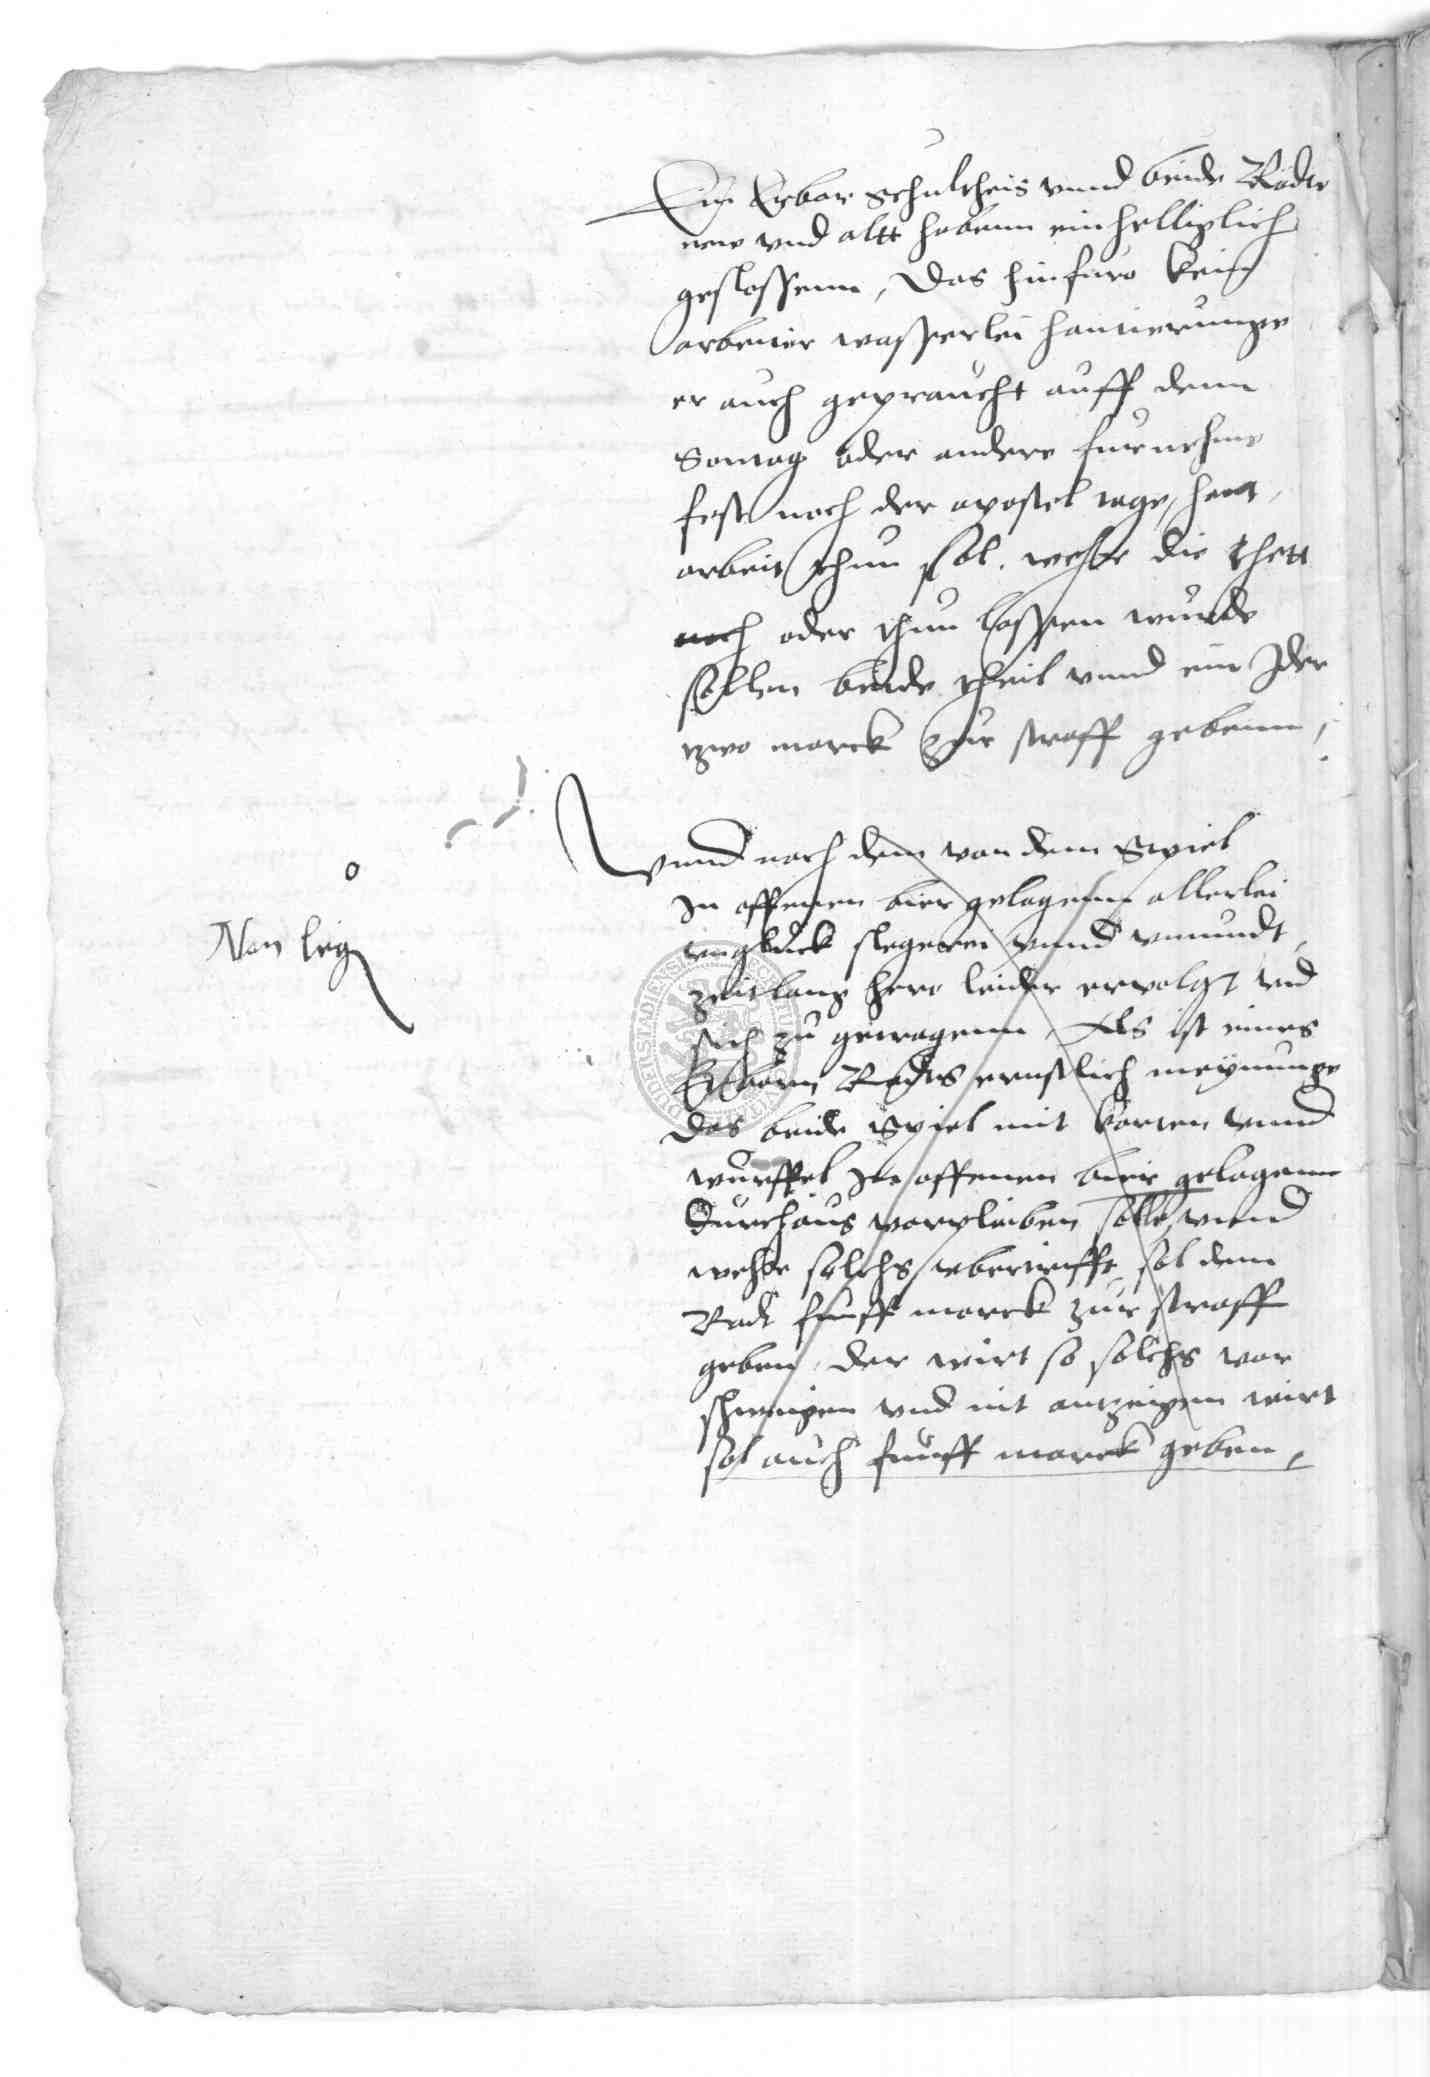 Ein Erbar Schultheis vnnd beide Rædte
new vnd altt habenn einhelliglich
geslossenn, Das hinfuro kein
arbeiter wasserlei hantierunge
er auch gepraucht auff denn
Sontag oder andere furnehme
fest noch der apostel tage, hant
arbeit thun sol. wehr die thett
noch oder thun lassen wurde
sollen beide theil vnnd ein Ider
tzwo marck zur straff gebenn,
Vnnd nach dem van dem Spiel
In offenen bier gelagenn allerlei
vngluck slegerei vnnd vnmundt,
zeitlang hero leider ervolgt vnd
sich zu getragenn, Als ist eines
Erbarn Radts ernstlich meynunge
Das beide Spiel mit karten vnnd
wurffel In offenen bier gelagenn
Durchaus vorpleiben solle, vnnd
wehr solchs vbertrifft sol dem
Radt funff marck zur straff
geben, der wirt so solchs vor
schweigen vnd nit antzeigen wirt
sol auch funff marck geben,
o
Non leg
DUDERSTADIENSI